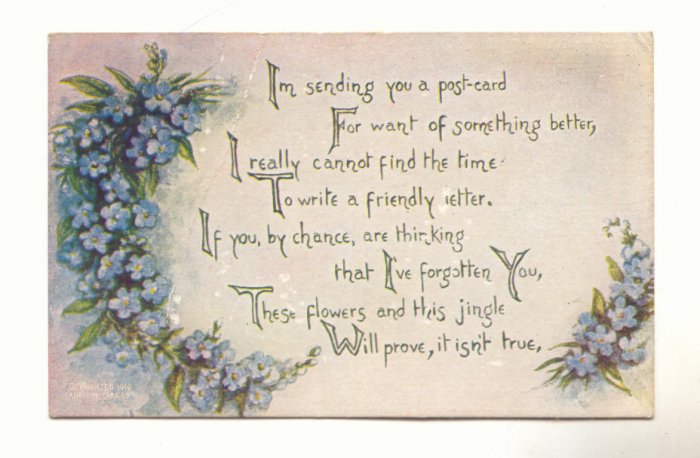 Im sending you a post-card
For want of something better,
I really cannot find the time
To write a friendly letter.
If you, by chance, are thinking
that I've forgotten You,
These flowers and this jingle
Will prove, it isn't true.
1910
CARD CO.